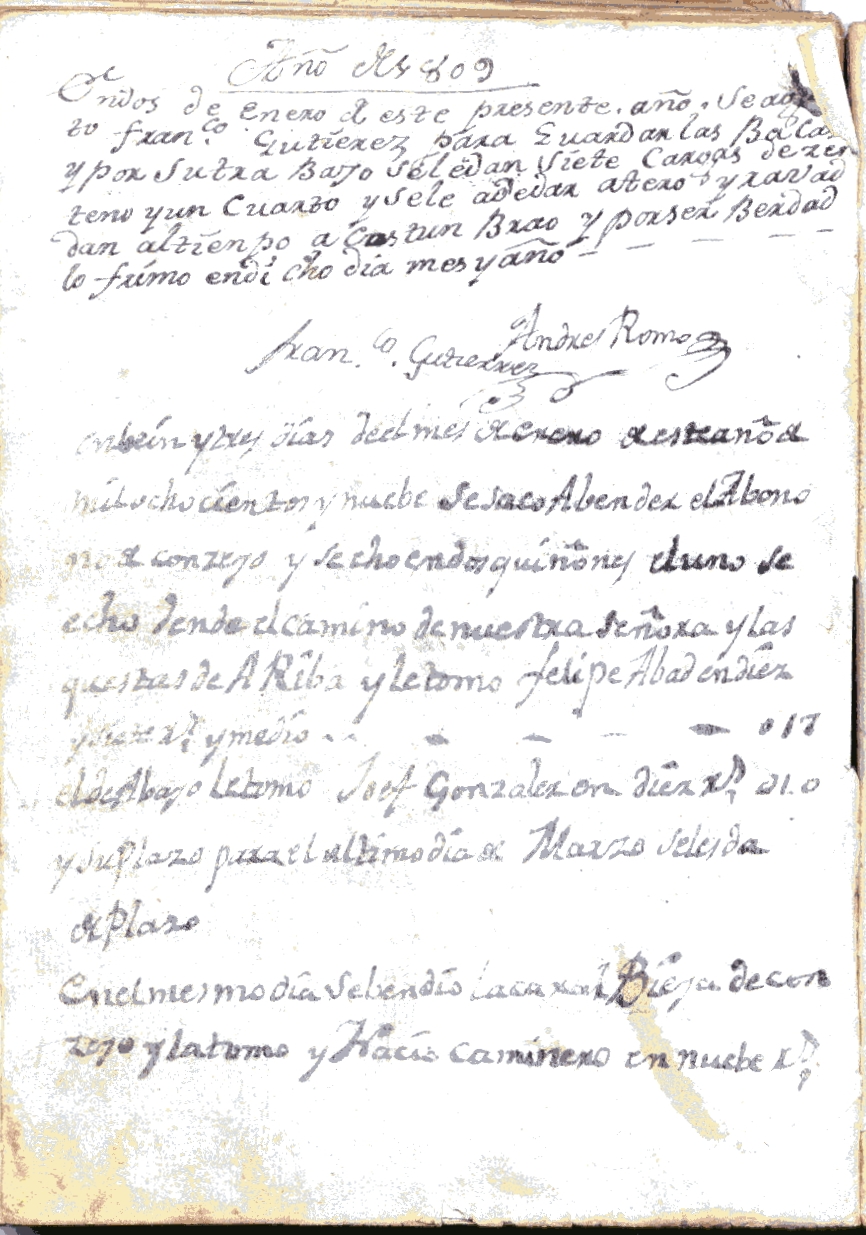 Año de 1809
En dos de Enero de este presente. año. Se ago
to fran.co Gutierez para Guardar las Bacas
y por Su tra Bajo Se le dan Siete Cargas de zen
teno y un Cuarto y Se le a de dar atero y
dan al tienpo a Costun Brao y por ser Berdad
lo firmo en di cho dia mes y año
Andres Romo
fran.co. Gutierrez
en bein y tres dias de el mes de enero de este año de
mil ochocientos y nuebe se saco A bender el Abono
no de conzejo y se cho en dos quiñones el uno se
echo dende el camino de nuestra señora y las
questas de A Riba y le tomo felipe Abad en diez
y siete rs y medio - - - - - 017
el de Abajo le tomo Josef Gonzalez en diez rs 010
y su Plazo para el ultimo dia de Marzo se les da
de Plazo
En el mesmo dia se bendio la Bieja de con
zejo y la tomo y Nacio Caminero en nuebe rs